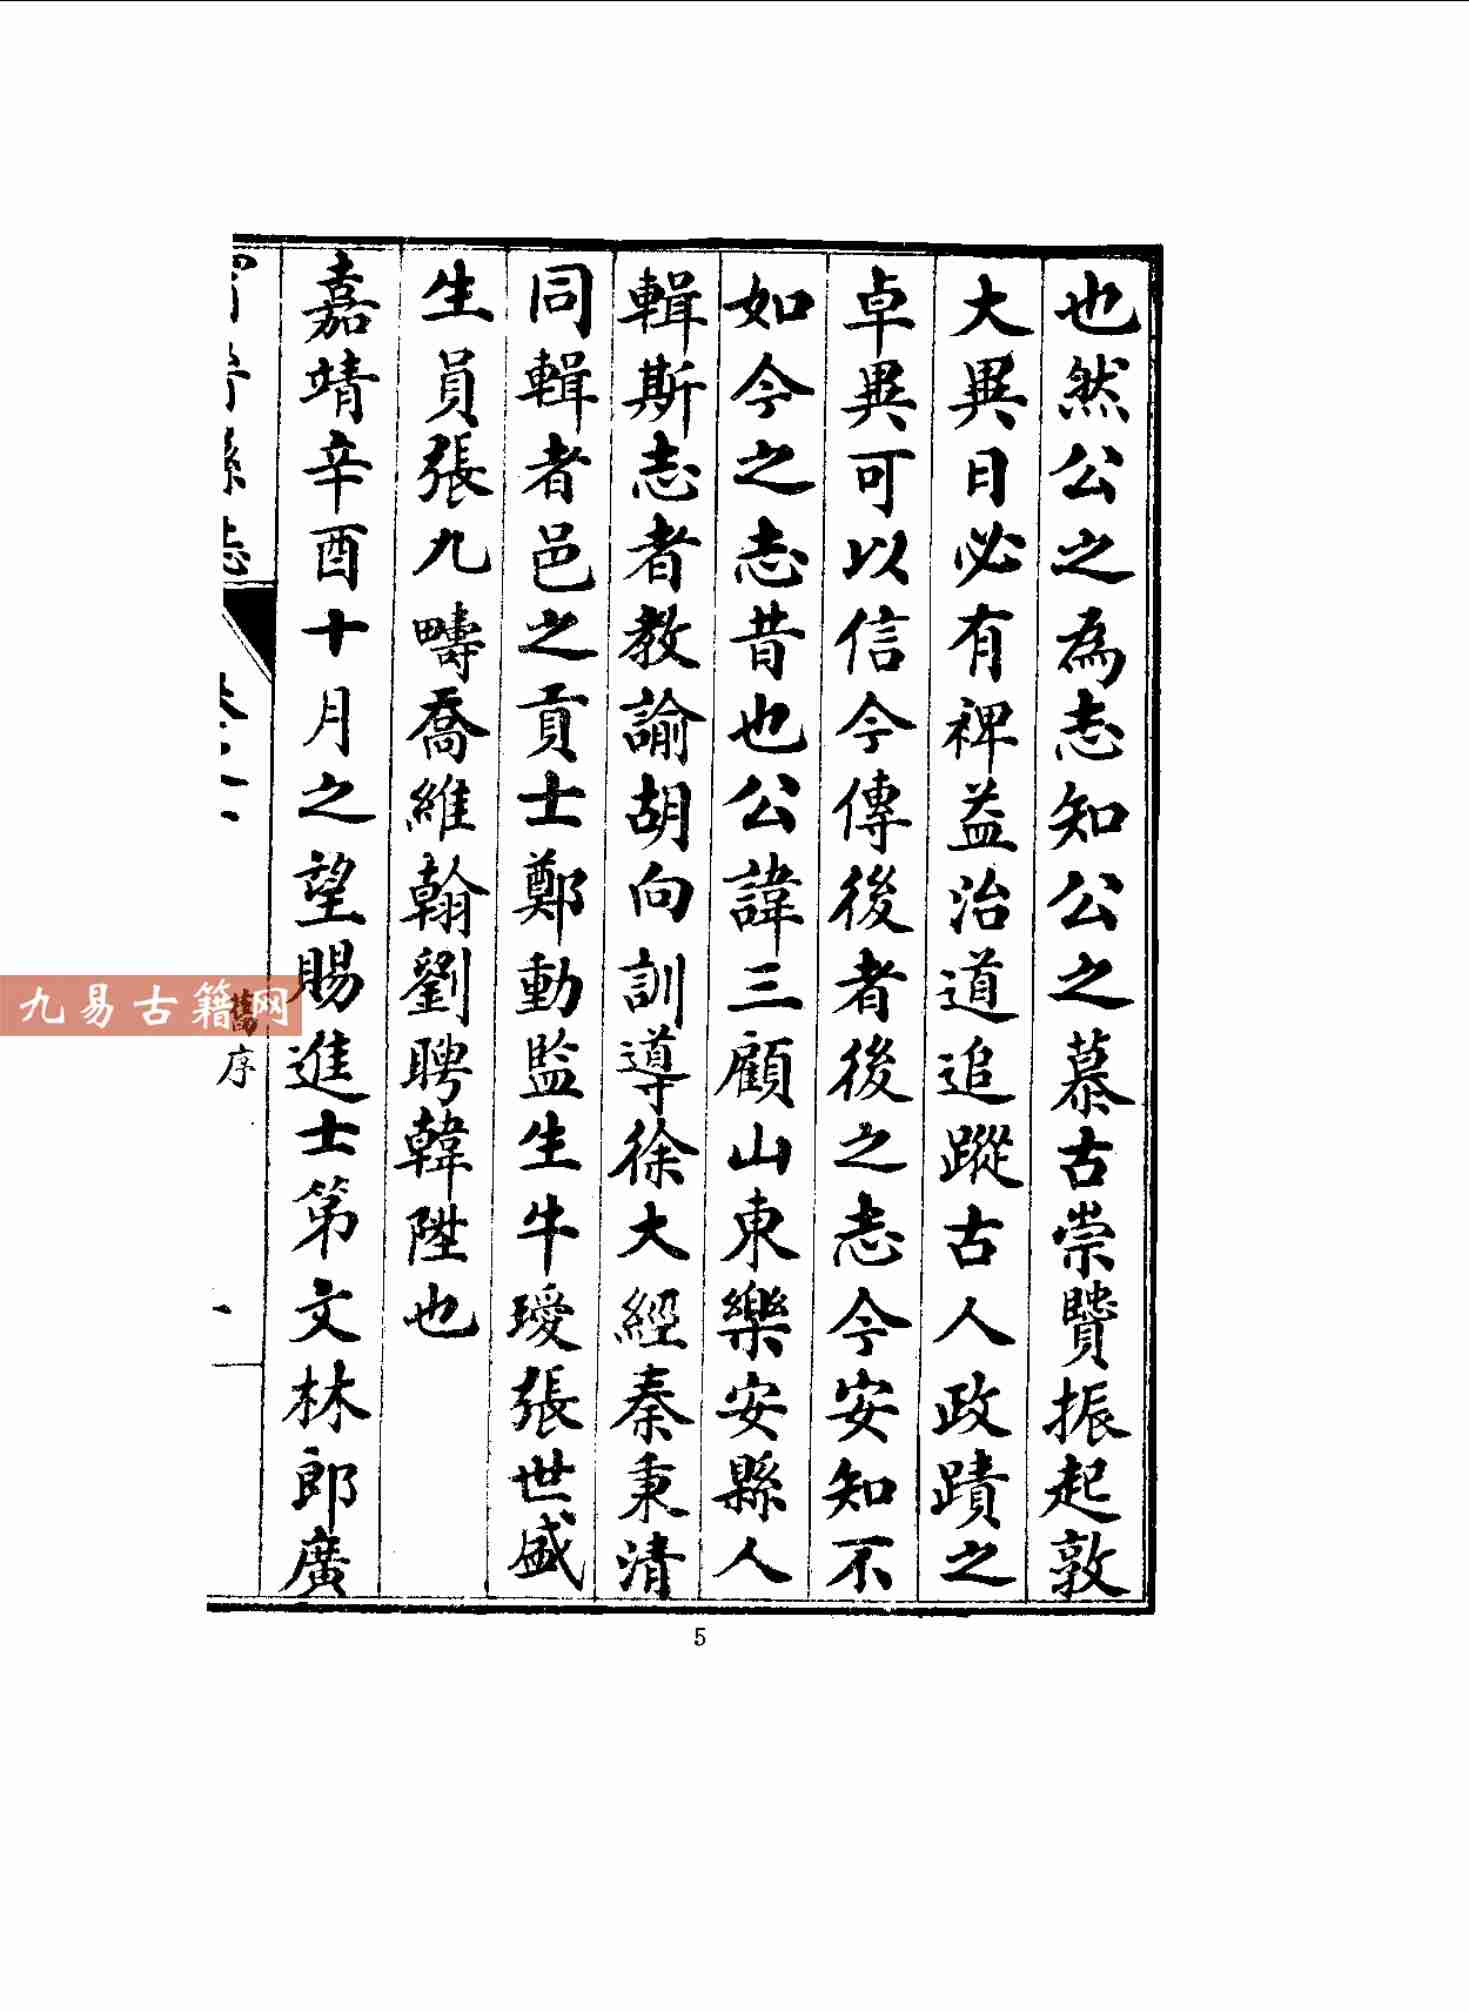 也然公之為志知公之慕古崇贒振起敦
大異日必有裨益治道追蹤古人政蹟之
卓異可以信今傳後者後之志今安知不
如今之志昔也公諱三顧山東樂安縣人
輯斯志者教諭胡向訓導徐大經秦秉清
同輯者邑之貢士鄭動監生牛璦張世盛
生員張九疇喬維翰劉聘韓陞也
嘉靖辛酉十月之望賜進士第文林郎廣
縣志
舊序
九易古籍网
5